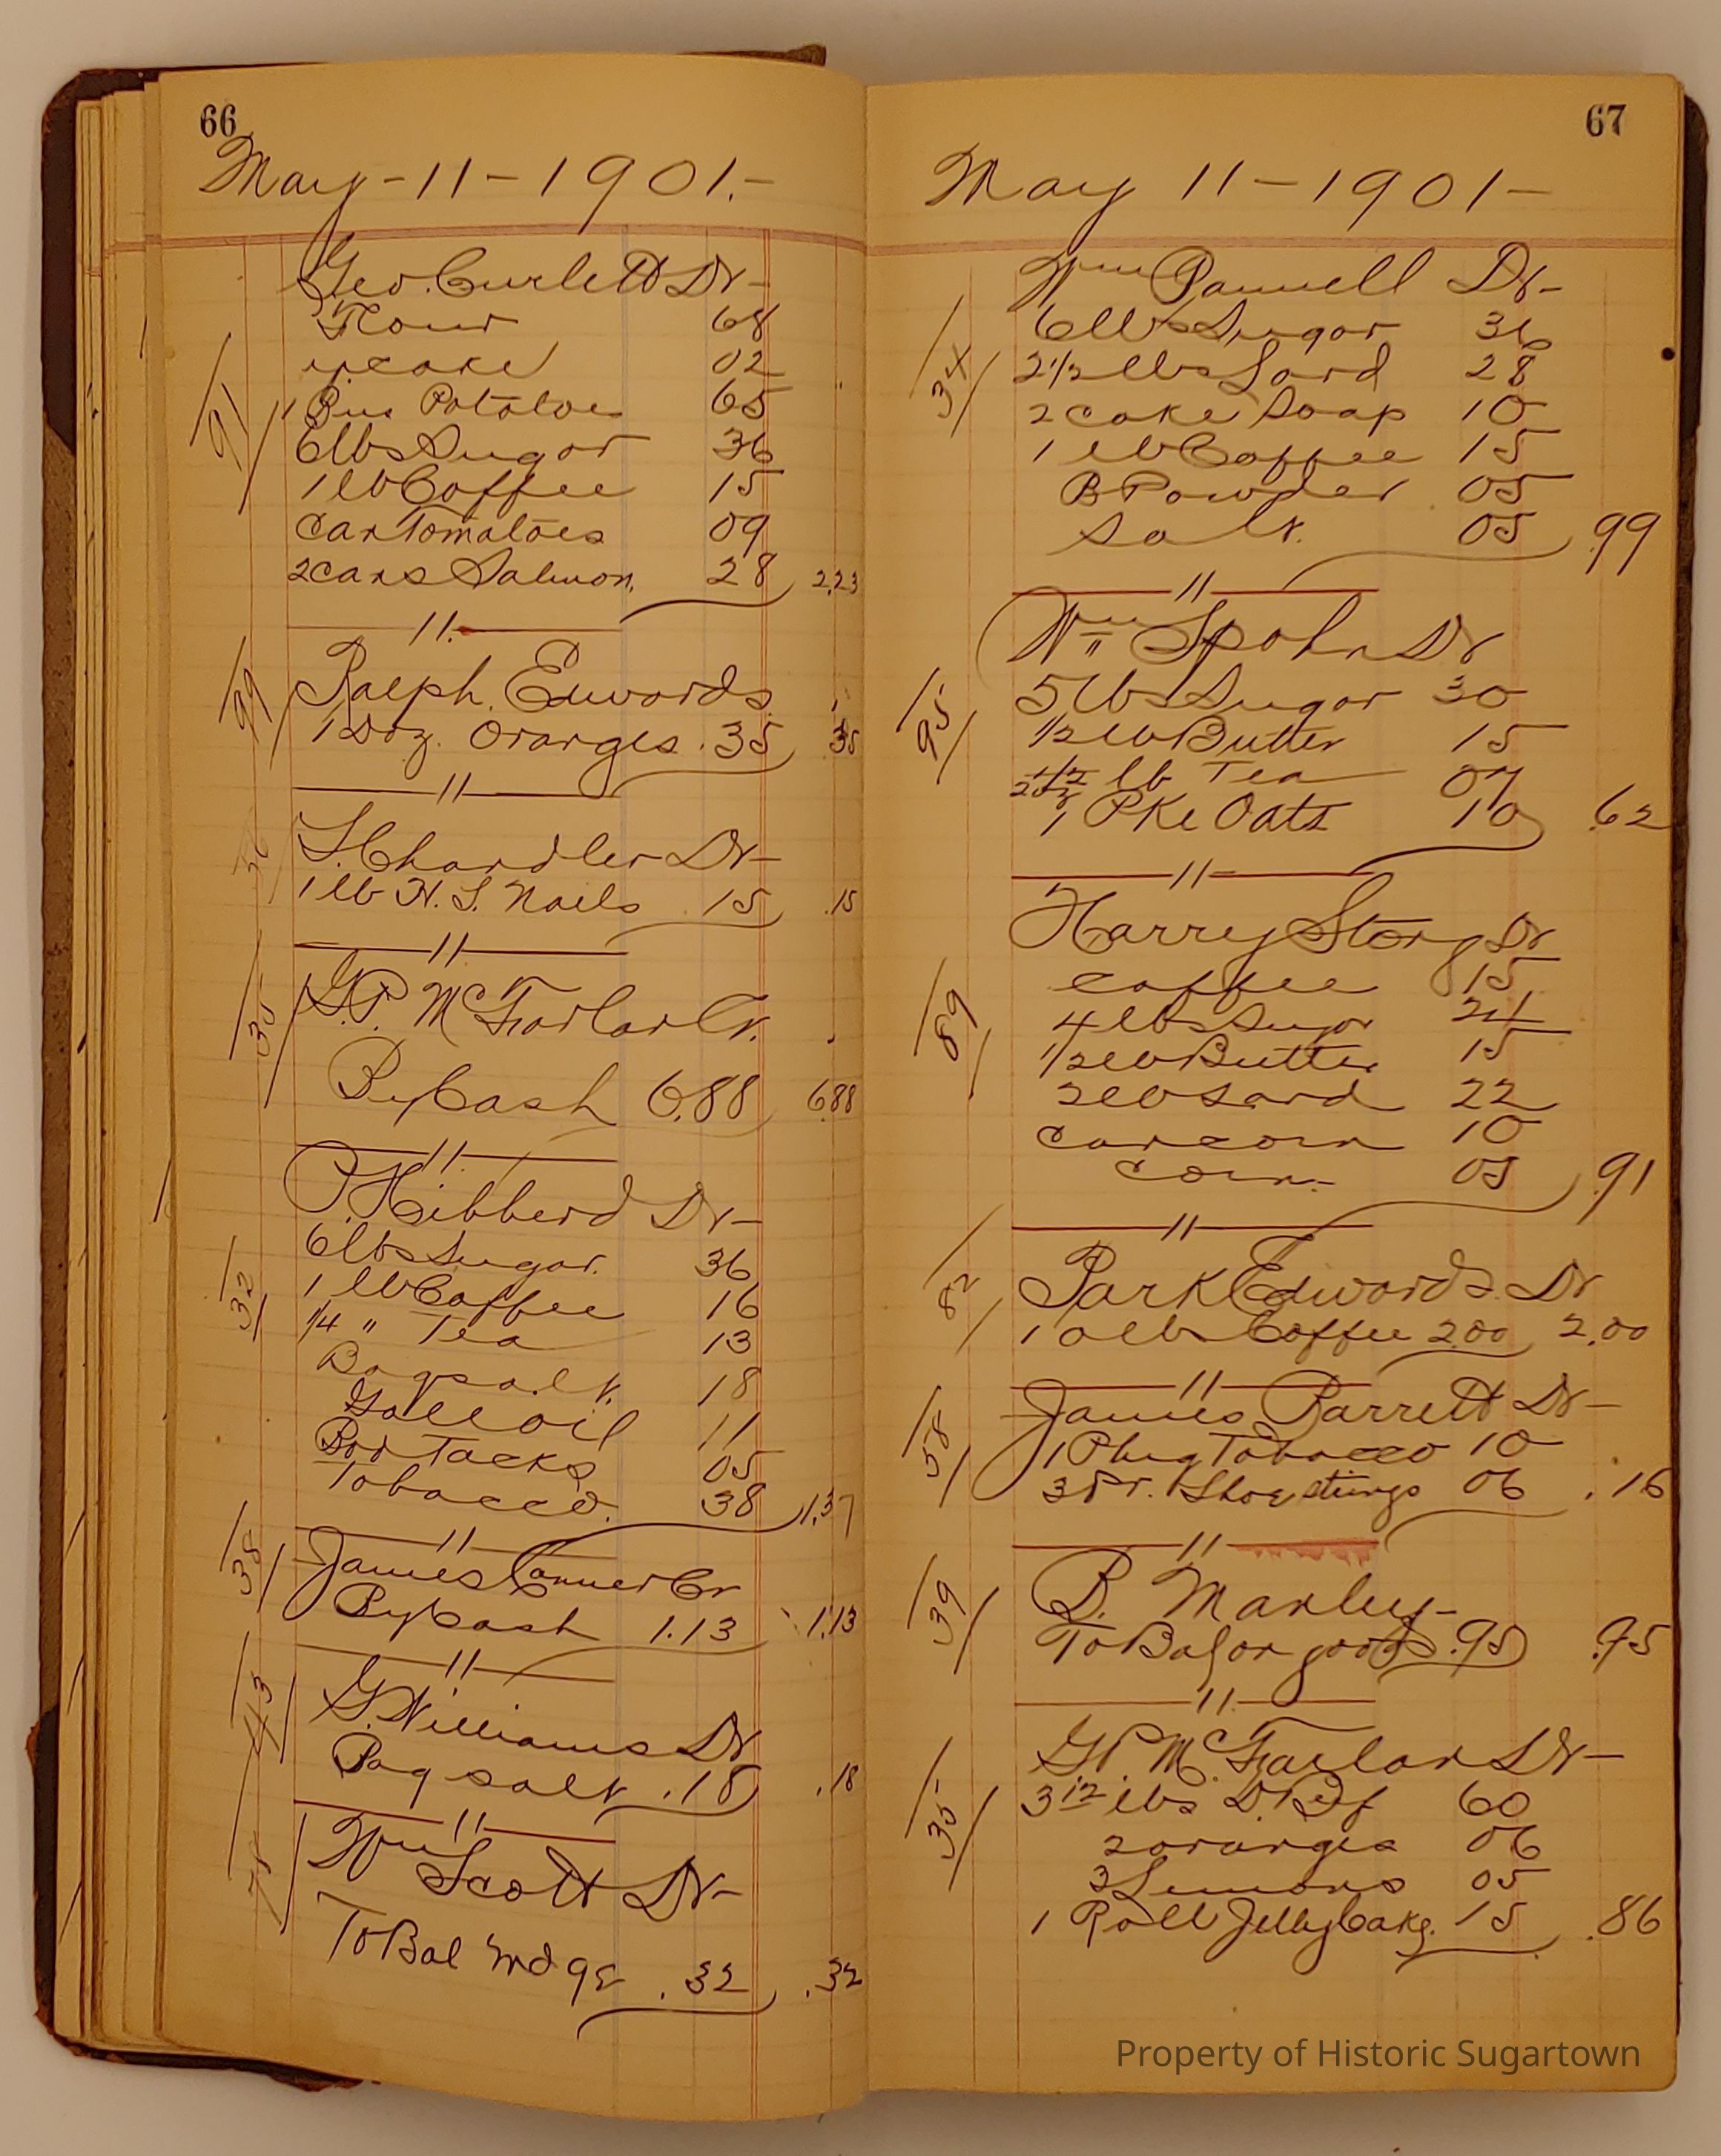 66
May-11-1901.-
Geo. Curlett Dr-
Flour 68
y cake 02
91
1 Bus Potatoes 65
6 lbs Sugar 36
1 lb Coffee 15
can Tomatoes 09
2 cans Salmon, 28 2.23
11.
99
Ralph. Edwards.
1 Doz. Oranges .35 .35
11
S. Chandler Dr-
1 lb H. S. Nails .15 .15
11
35
G.P. McFarlan Cr.
By Cash 6.88 6.88
11.
P. Hibberd Dr-
6 lbs Sugar. 36
32
1 lb Coffee 16
1/4 " Tea 13
Bag salt. 18
Gall oil 11
Box Tacks 05
Tobacco. 38 1.37
11
38
James Conner Cr
By Cash 1.13 1.13
11
43
G. Williams Dr
Bag salt .18 .18
11
78
Wm Scott Dr-
To Bal mdge .32 .32
67
May 11-1901-
Wm Pannell Dr-
6 lbs Sugar 36
34
2 1/2 lbs Lard 28
2 cake Soap 10
1 lb Coffee 15
B Powder 05
Salt. 05 .99
11
Wm Spohn Dr
95
5 lbs Sugar 30
1/2 lb Butter 15
lb Tea 07
1 Pke Oats 10 .62
11
Harry Storg Dr
coffee 15
89
4 lbs Sugar 24
1/2 lb Butter 15
2 lb Lard 22
can corn 10
corn- 05 .91
11
82
Park Edwards. Dr
10 lbs Coffee 2.00 2.00
11
58
James Barrett Dr-
1 Plug Tobacco 10
3 Pr. Shoe strings 06 .16
11
39
B. Manley-
To Bal on goods .95 .95
11.
G.P. McFarlan Dr-
35
3 12 lbs D. Bef 60
2 oranges 06
3 Lemons 05
1 Roll Jelly Cake. 15 .86
Property of Historic Sugartown